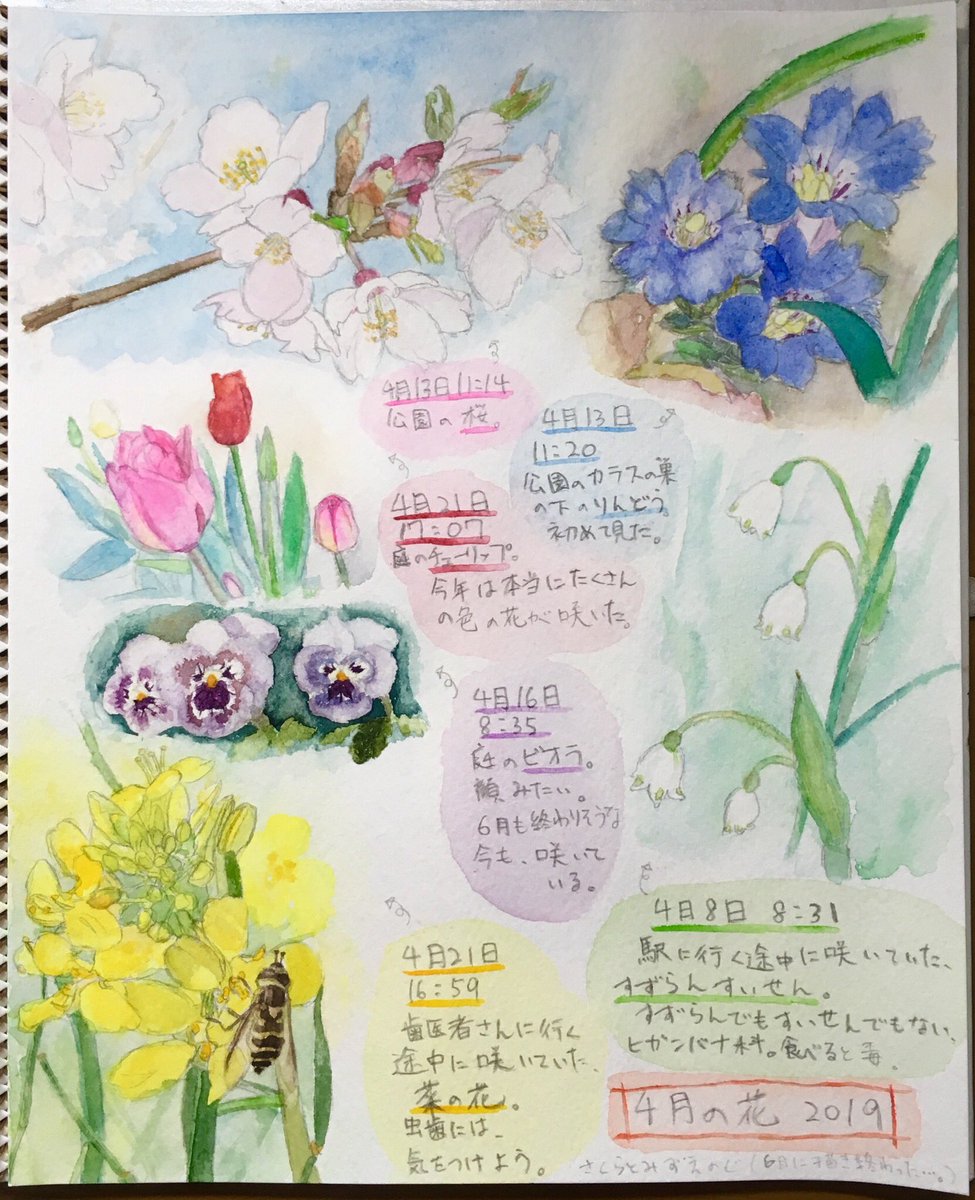 4月13日 11:14
公園の桜。
4月13日
11:20
公園のカラスの巣
の下のりんどう。
初めて見た。
4月21日
17:07
庭のチューリップ。
今年は本当にたくさん
の色の花が咲いた。
4月16日
8:35
庭のビオラ。
顔みたい。
6月も終わりそうな
今も、咲いて
いる。
4月8日 8:31
駅に行く途中に咲いていた、
すずらんすいせん。
すずらんでもすいせんでもない、
ヒガンバナ科。食べると毒。
4月21日
16:59
歯医者さんに行く
途中に咲いていた、
菜の花。
虫歯には、
気をつけよう。
4月の花 2019
さくらとみずえのぐ(6月に描き終わった…。)